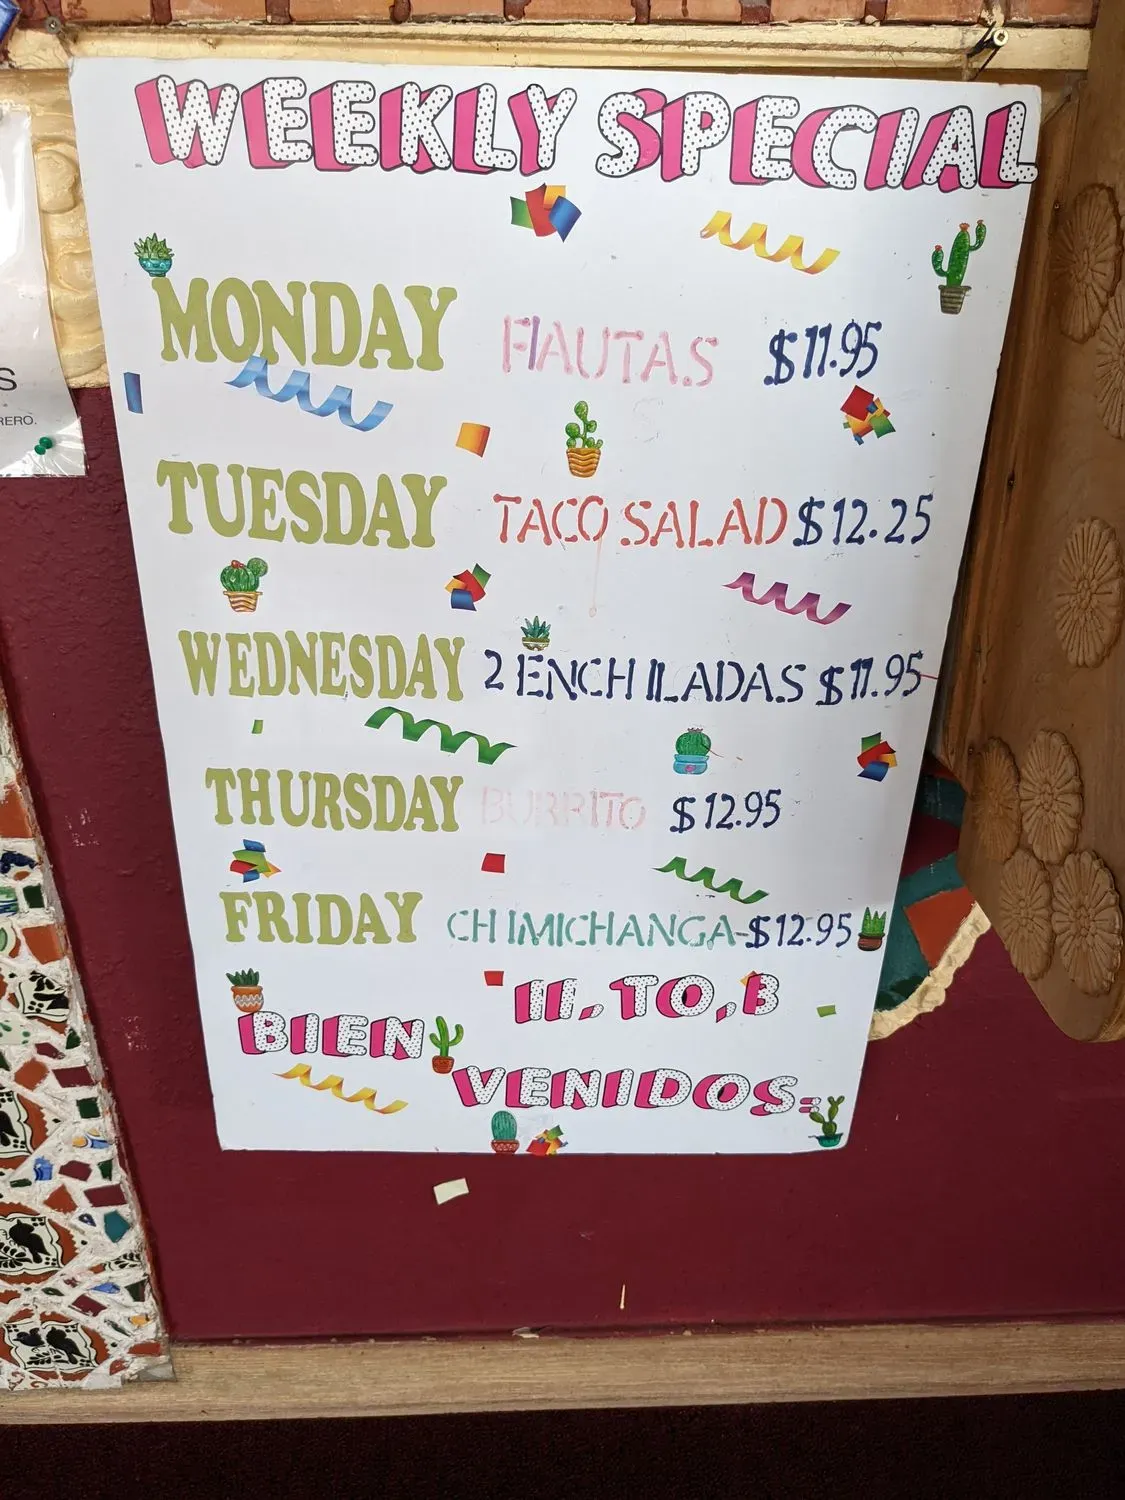 WEEKLY SPECIAL
MONDAY FlAUTAS $11.95
TUESDAY TACO SALAD $12.25
WEDNESDAY 2 ENCHILADAS $11.95
THURSDAY BURRITO $12.95
FRIDAY CHIMICHANGA-$12.95
11,TO,B
BIEN
VENIDOS:
S
RERO.